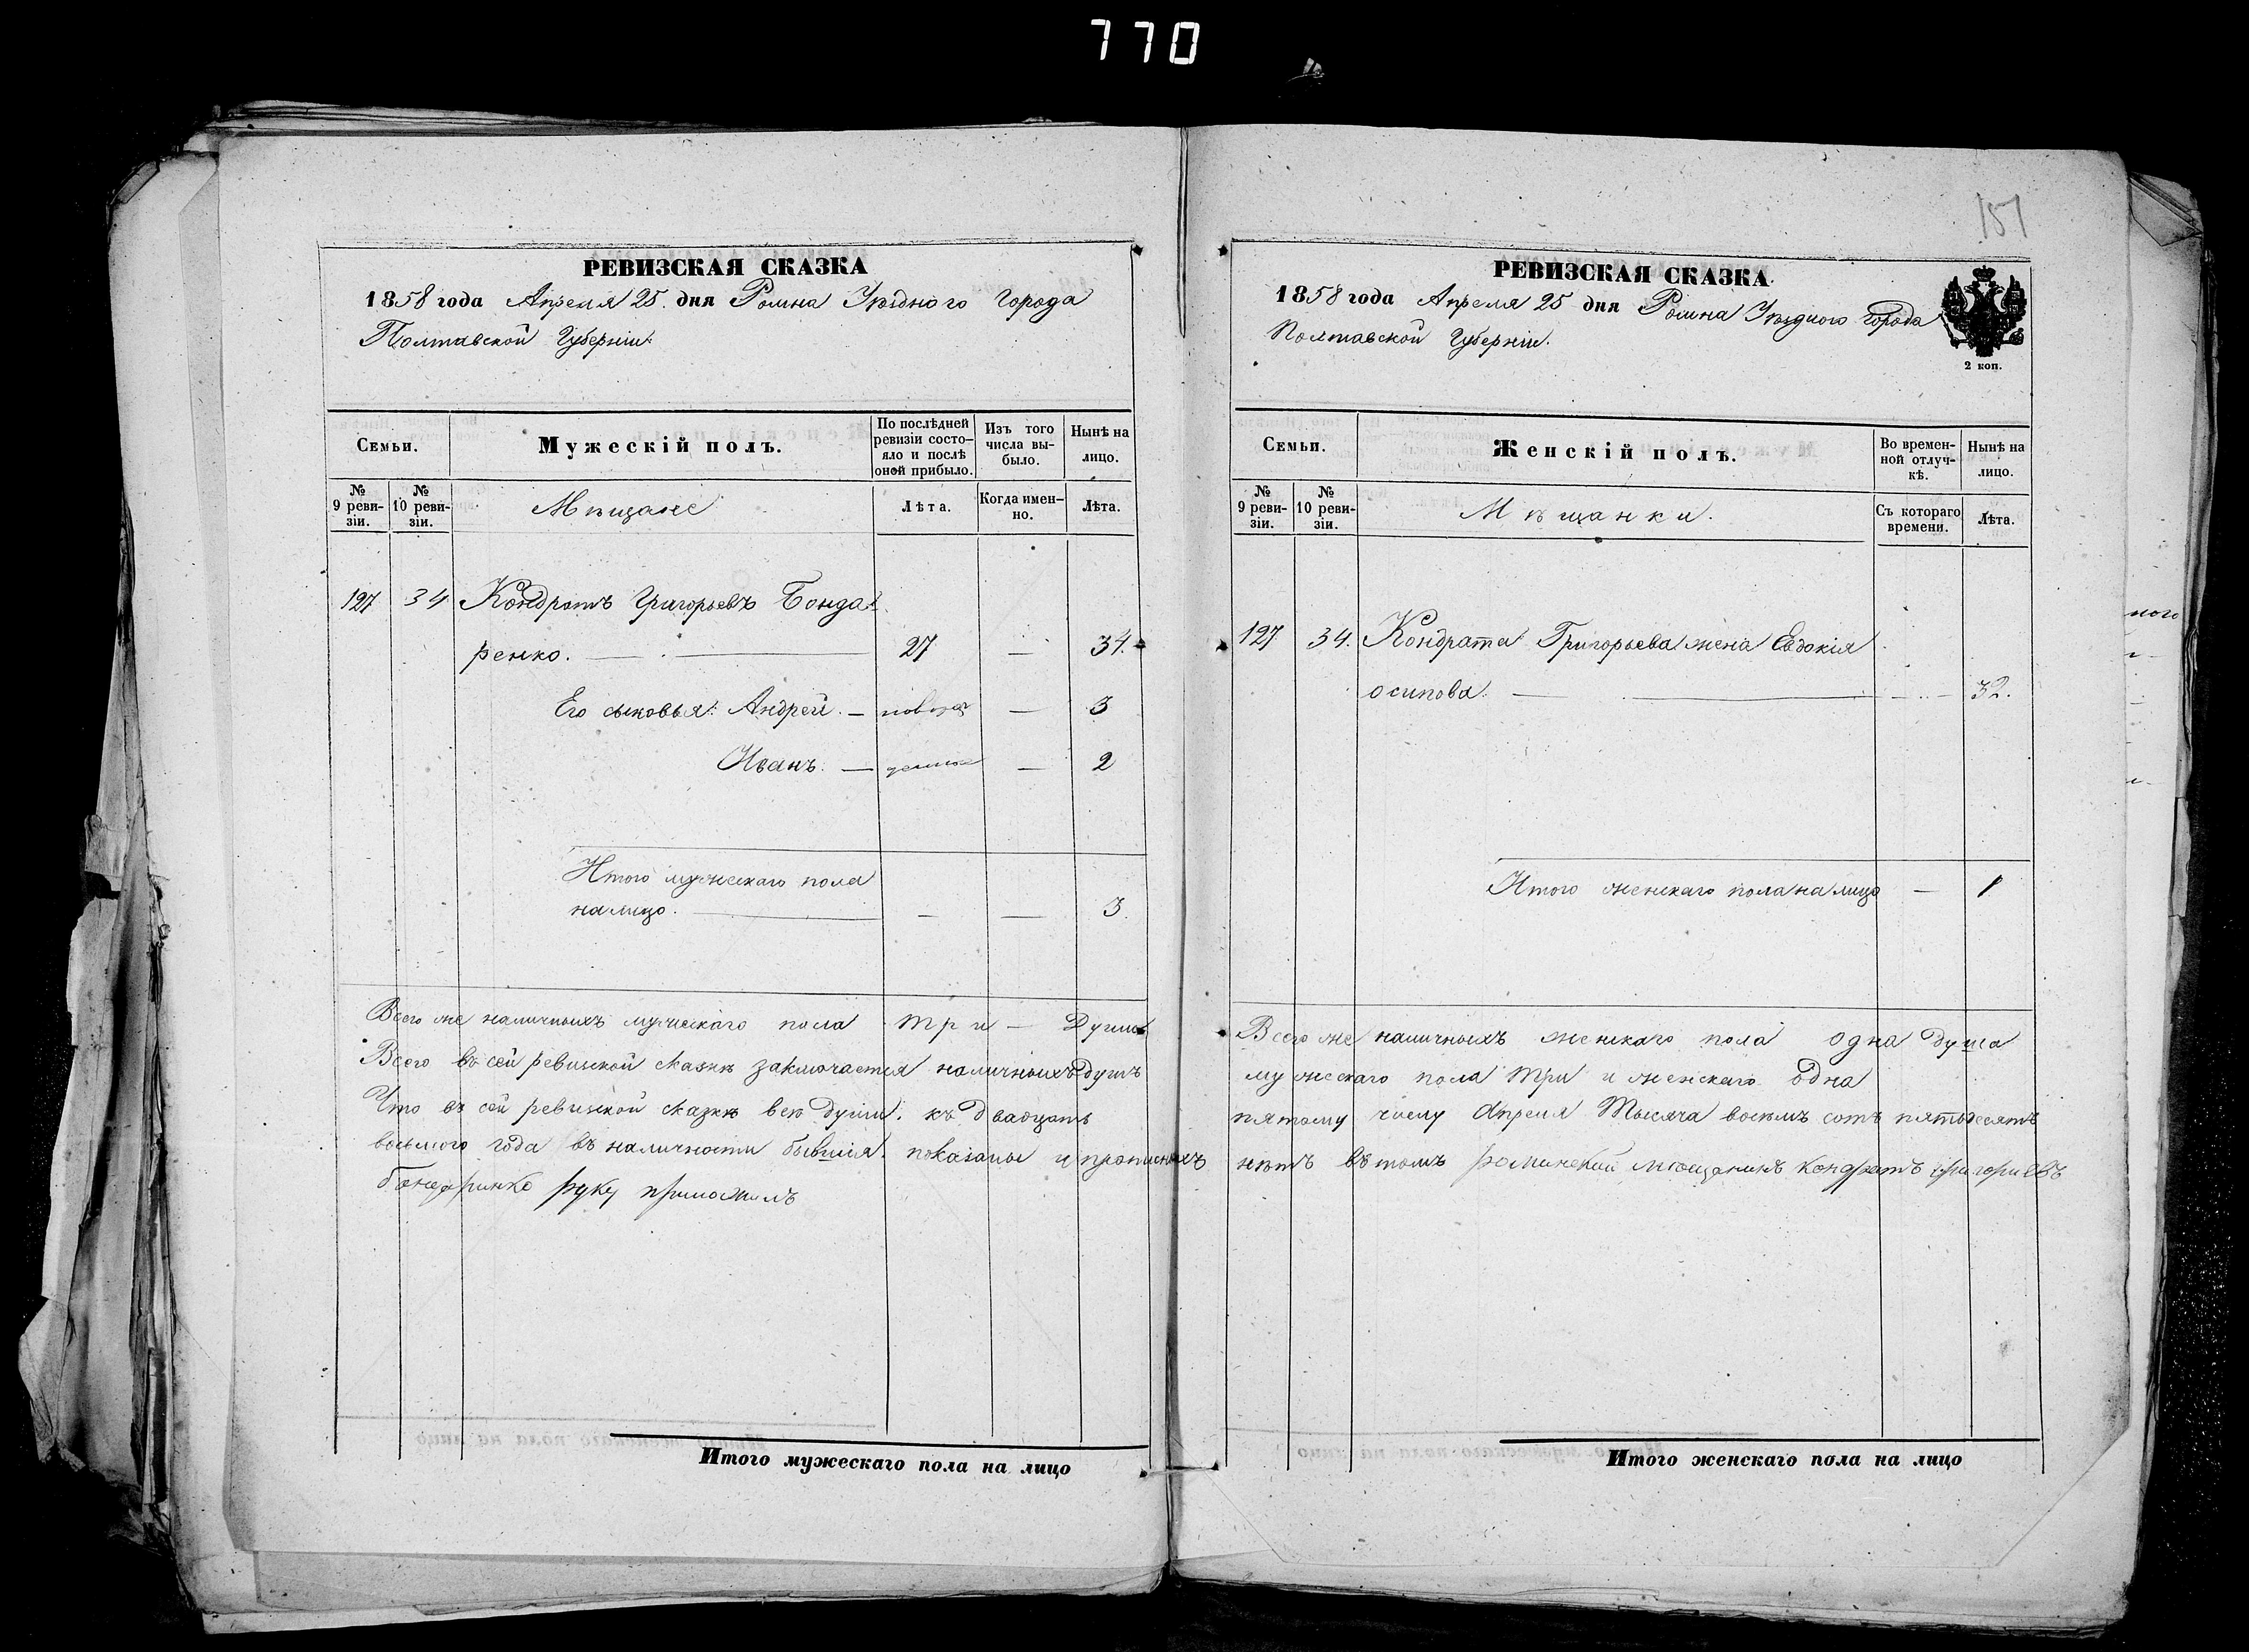 770
РЕВИЗСКАЯ СКАЗКА
1858 года Апреля 25. дня Ромна Уѣзднаго Города
Полтавской Губерніи.
Семьи.
Мужескій полъ.
По послѣдней ревизіи состо-
яло и послѣ оной прибыло.
Изъ того числа вы-
было.
Нынѣ на лицо.
№ 9 реви-
зіи.
№ 10 реви-
зіи.
Мѣщане
Лѣта.
Когда имен-
но.
Лѣта.
127 34 Кондратъ Григорьевъ Бонда-
ренко. — 27 — 34.
Его сыновья: Андрей. — — 3
Иванъ. — — 2
Итого мужескаго пола
налицо. — — — 3.
Всего же наличныхъ мужескаго пола три — Души
Всего въ сей ревизской сказкѣ заключается наличныхъ душъ
Что въ сей ревизской сказкѣ всѣ души. къ двадцать
восьмого года въ наличности бывшія. показаны и прописныхъ
бондаринко руку приложилъ
Итого мужескаго пола на лицо
151
РЕВИЗСКАЯ СКАЗКА
1858 года Апреля 25 дня Ромна Уѣзднаго города
Полтавской Губерніи.
2 коп.
Семьи.
Женскій полъ.
Во времен-
ной отлуч-
кѣ.
Нынѣ на лицо.
№ 9 реви-
зіи.
№ 10 реви-
зіи.
Мѣщанки.
Съ котораго времени.
Лѣта.
127 34. Кондрата Григорьева жена Евдокія
осипова. — — 32.
Итого женскаго пола на лицо — 1
Всего же наличныхъ женскаго пола одна душа
мужескаго пола три и женскаго одна
пятому числу Апреля Тысяча восемь сотъ пятьдесятъ
нѣтъ вътомъ роминской мющенинъ кондратъ григориевъ
Итого женскаго пола на лицо
ного